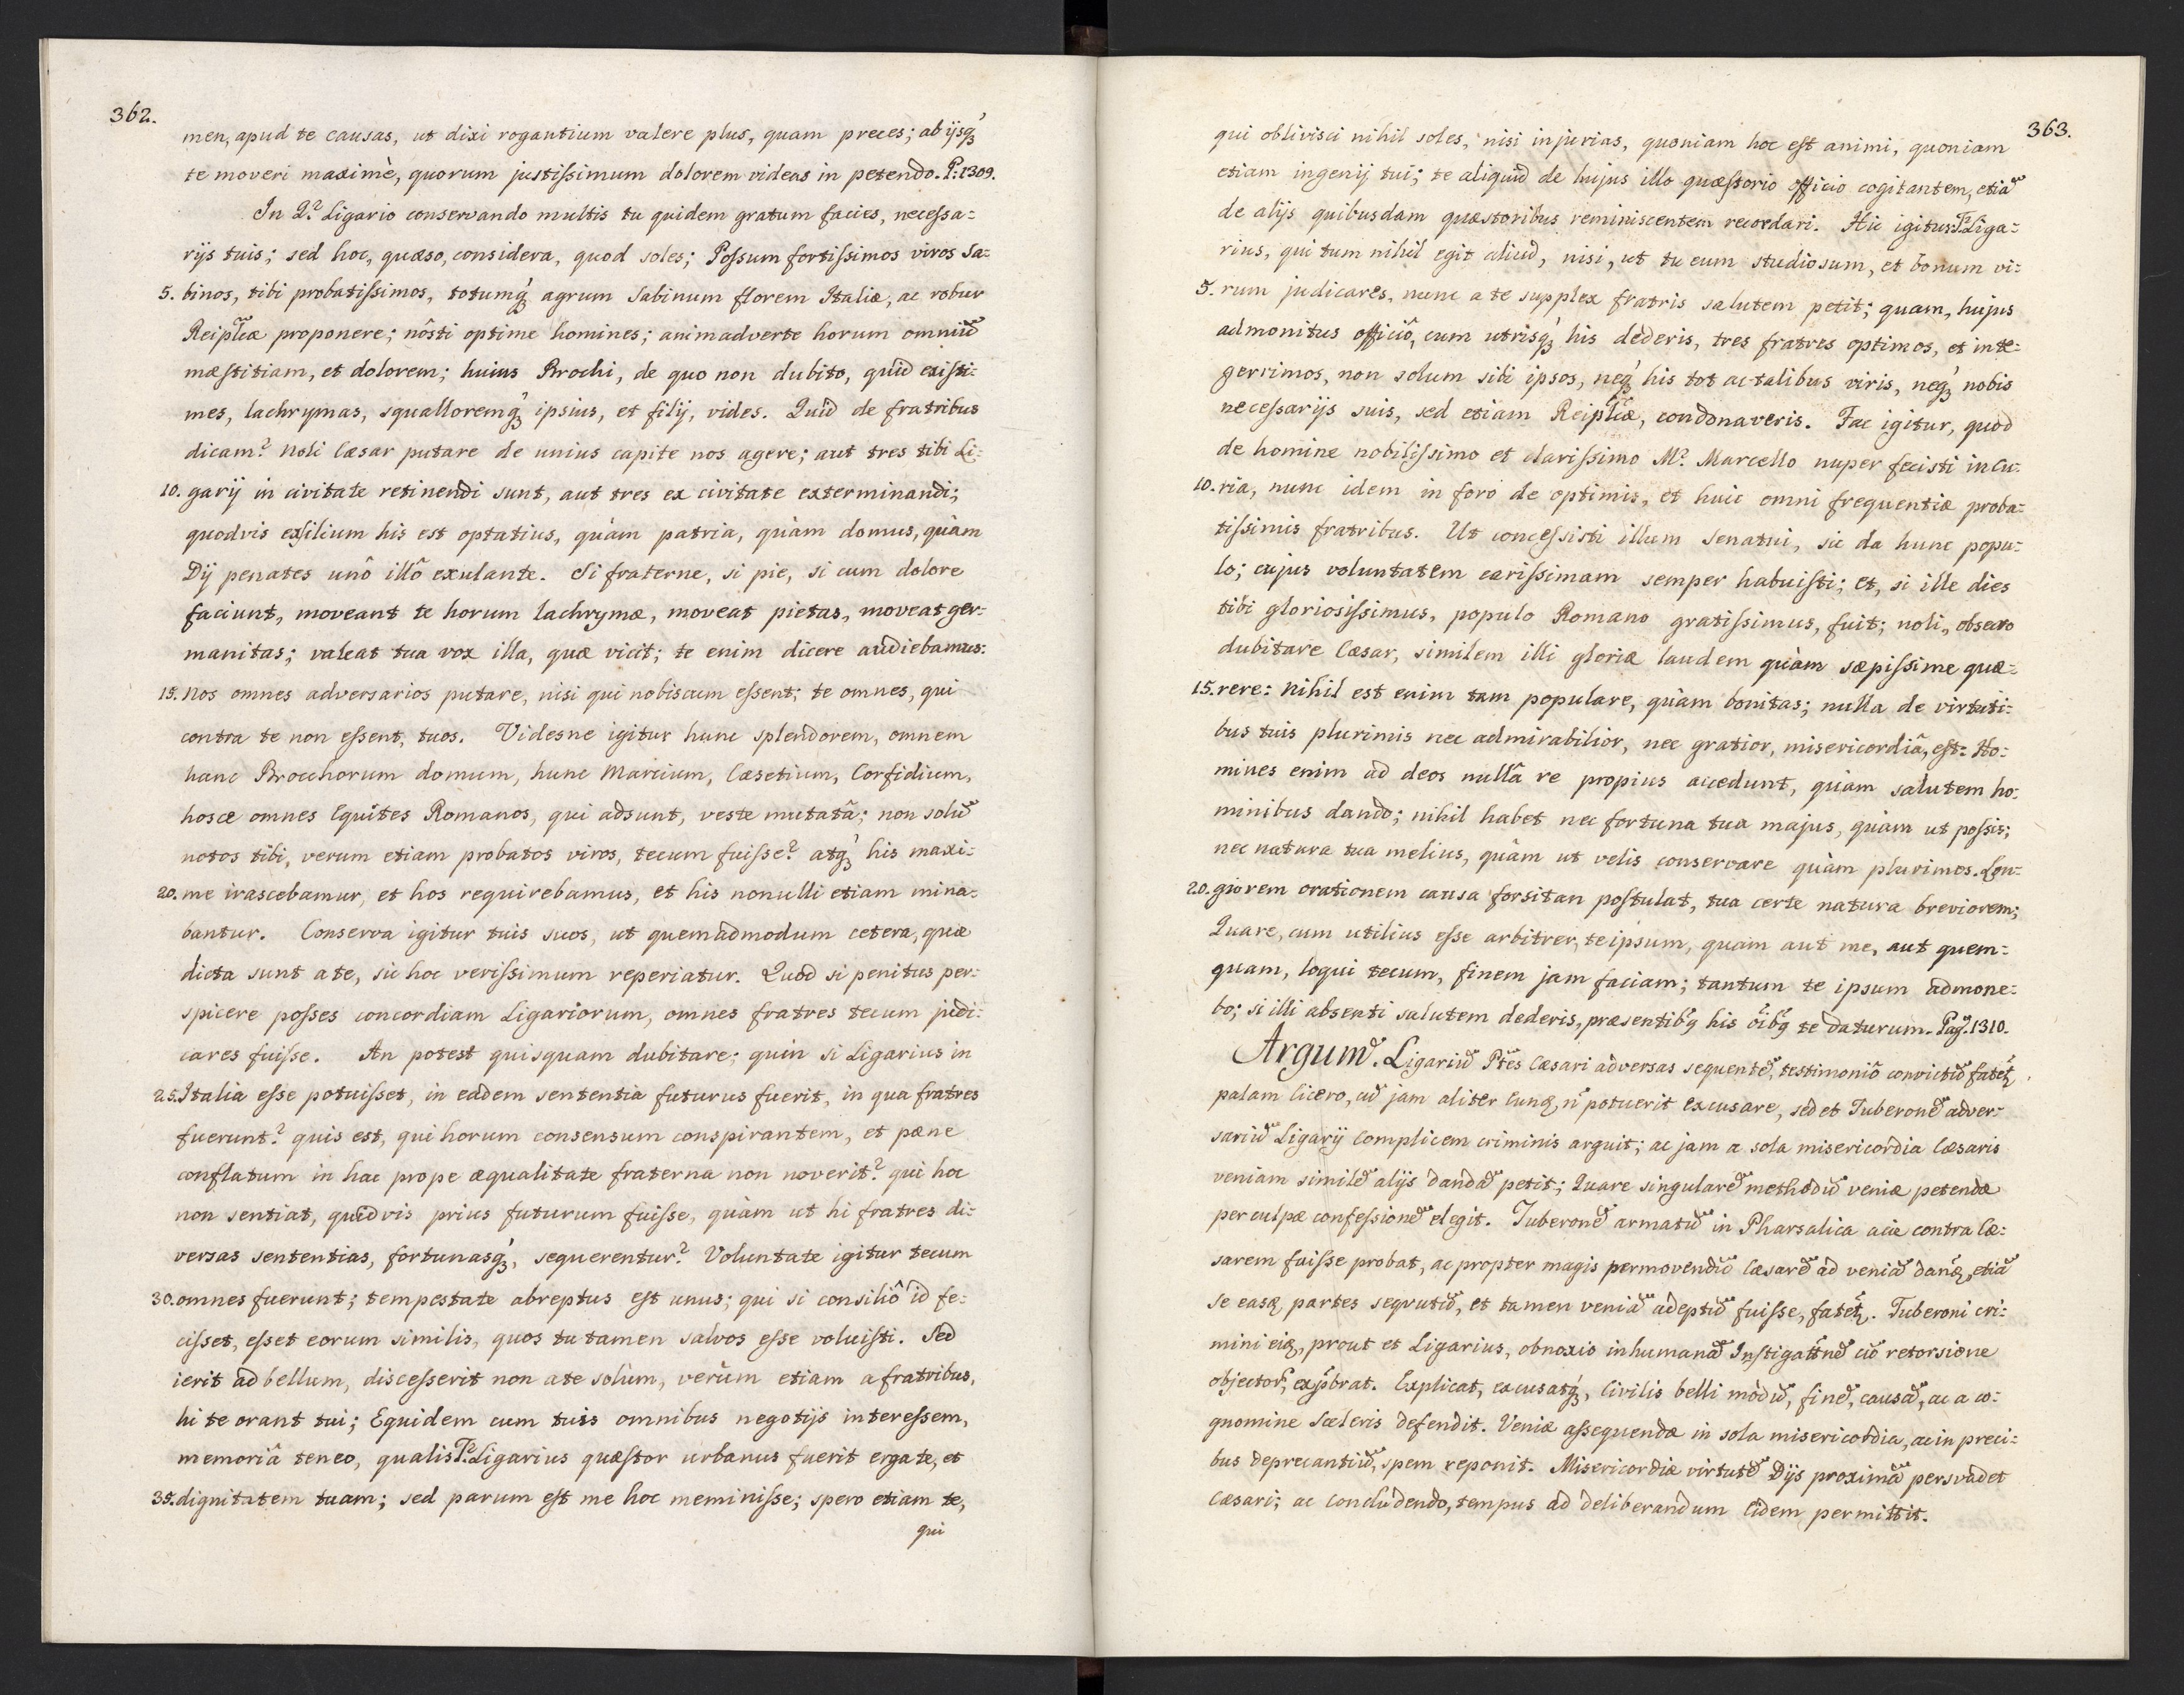 362.
men, apud te causas, ut dixi rogantium valere plus, quam preces; ab ijsq́ꝫ
te moveri maximè, quorum justiſsimum dolorem videas in petendo. P: 1309.
In Q.ͦ Ligario conservando multis tu quidem gratum facies, neceſsa=
rijs tuis; sed hoc, quæso, considera, quod soles; Poſsum fortiſsimos viros Sa=
5. binos, tibi probatiſsimos, totumq́ꝫ agrum Sabinum florem Italiæ, ac robur
Reiplicæ proponere; nôsti optime homines; animadverte horum omniū
mæſtitiam, et dolorem; huius Brochi, de quo non dubito, quid exiſti=
mes, lachrymas, squalloremq́ꝫ ipsius, et filij, vides. Quid de fratribus
dicam? Noli Cæsar putare de unius capite nos agere; aut tres tibi Li=
10. garij in civitate retinendi sunt, aut tres ex civitate exterminandi;
quodvis exſilium his est optatius, quàm patria, quàm domus, quàm
Dij penates unô illô exulante. Si fraterne, si pie, si cum dolore
faciunt, moveant te horum lachrymæ, moveat pietas, moveat ger=
manitas; valeat tua vox illa, quæ vicit; te enim dicere audiebamus:
15. Nos omnes adversarios putare, nisi qui nobiscum eſsent; te omnes, qui
contra te non eſsent, tuos. Videsne igitur hunc splendorem, omnem
hanc Brocchorum domum, hunc Marcium, Cæsetium, Corfidium,
hosce omnes Equites Romanos, qui adsunt, veste mutatâ; non solū
notos tibi, verum etiam probatos viros, tecum fuiſse? atq́ꝫ his maxi=
20. me irascebamur, et hos requirebamus, et his nonulli etiam mina=
bantur. Conserva igitur tuis suos, ut quemadmodum cetera, quæ
dicta sunt a te, sic hoc veriſsimum reperiatur. Quod si penitus per=
spicere poſses concordiam Ligariorum, omnes fratres tecum judi=
cares fuiſse. An potest quisquam dubitare; quin si Ligarius in
25. Italia eſse potuiſset, in eadem sententia futurus fuerit, in qua fratres
fuerunt? quis est, qui horum consensum conspirantem, et pæne
conflatum in hac prope æqualitate fraterna non noverit? qui hoc
non sentiat, quidvis prius futurum fuiſse, quàm ut hi fratres di=
versas sententias, fortunasq́ꝫ, sequerentur? Voluntate igitur tecum
30. omnes fuerunt; tempestate abreptus eſt unus; qui si consiliô id fe=
ciſset, eſset eorum similis, quos tu tamen salvos eſse voluiſti. Sed
ierit ad bellum, disceſserit non a te solùm, verùm etiam a fratribus,
hi te orant tui; Equidem cum tuis omnibus negotijs intereſsem,
memoriâ teneo, qualis T.ͦ Ligarius quæſtor urbanus fuerit erga te, et
35. dignitatem tuam; sed parum eſt me hoc meminiſse; spero etiam te,
qui
363.
qui oblivisci nihil soles, nisi injurias, quoniam hoc eſt animi, quoniam
etiam ingenij tui; te aliquid de hujus illo quæſtorio officio cogitantem, etiā
de alijs quibusdam quæstoribus reminiscentem recordari. Hic igitur T.ͦ Liga=
rius, qui tum nihil egit aliud, nisi, ut tu eum studiosum, et bonum vi=
5. rum judicares, nunc a te supplex fratris salutem petit; quam, hujus
admonitus officiô, cum utrisq́ꝫ his dederis, tres fratres optimos, et inte=
gerrimos, non solum sibi ipsos, neq́ꝫ his tot ac talibus viris, neq́ꝫ nobis
neceſsarijs suis, sed etiam Reiplicæ, condonaveris. Fac igitur, quod
de homine nobiliſsimo et clariſsimo M.ͦ Marcello nuper fecisti in Cu=
10. ria, nunc idem in foro de optimis, et huic omni frequentiæ proba=
tiſsimis fratribus. Ut conceſsisti illum Senatui, sic da hunc popu=
lo; cujus voluntatem cariſsimam semper habuiſti; et, si ille dies
tibi glorioſiſsimus, populo Romano gratiſsimus, fuit; noli, obsecro
dubitare Cæsar, similem illi gloriæ laudem quàm sæpiſsime quæ=
15. rere: Nihil est enim tam populare, quàm bonitas; nulla de virtuti=
bus tuis plurimis nec admirabilior, nec gratior, misericordiâ, eſt: Ho=
mines enim ad deos nullâ re propius accedunt, quàm salutem ho=
minibus dando; nihil habet nec fortuna tua majus, quàm ut poſsis;
nec natura tua melius, quàm ut velis conservare quàm plurimos. Lon=
20. giorem orationem causa forsitan poſtulat, tua certe natura breviorem;
Quare, cum utilius eſse arbitrer, te ipsum, quam aut me, aut quem=
quam, loqui tecum, finem jam faciam; tantum te ipsum admone=
bo; si illi absenti salutem dederis, præsentibꝯ his oībꝯ te daturum. Pag: 1310.
Argum̄. Ligariū Ptēs Cæsari adversas sequentē, testimoniô convictū fatet́ꝛ
palam Cicero, cū jam aliter eunꝫ n̄ potuerit excusare, sed et Tuberonē adver=
sariū Ligarij complicem criminis arguit; ac jam a sola misericordia Cæsaris
veniam similē alijs dandā petit; Quare singularē methodū veniæ petendæ
per culpæ confeſsionē elegit. Tuberonē armatū in Pharsalica acie contra Cæ=
sarem fuiſse probat, ac propter magis permovendū Cæsarē ad veniā danꝫ, etiā
se easꝫ partes sequutū, et tamen veniā adeptū fuiſse, fatet́ꝛ. Tuberoni cri=
mini eiꝫ, prout et Ligarius, obnoxio inhumanā Inſtigatnē cū retorsione
objector̄, exp̄brat. Explicat, excusatq́ꝫ, Civilis belli modū, finē, causā, ac a co=
gnomine sceleris defendit. Veniæ aſsequendæ in sola misericordia, ac in preci=
bus deprecantiū, spem reponit. Misericordiæ virtutē Dijs proximā persvadet
Cæsari; ac concludendo, tempus ad deliberandum Eidem permittit.